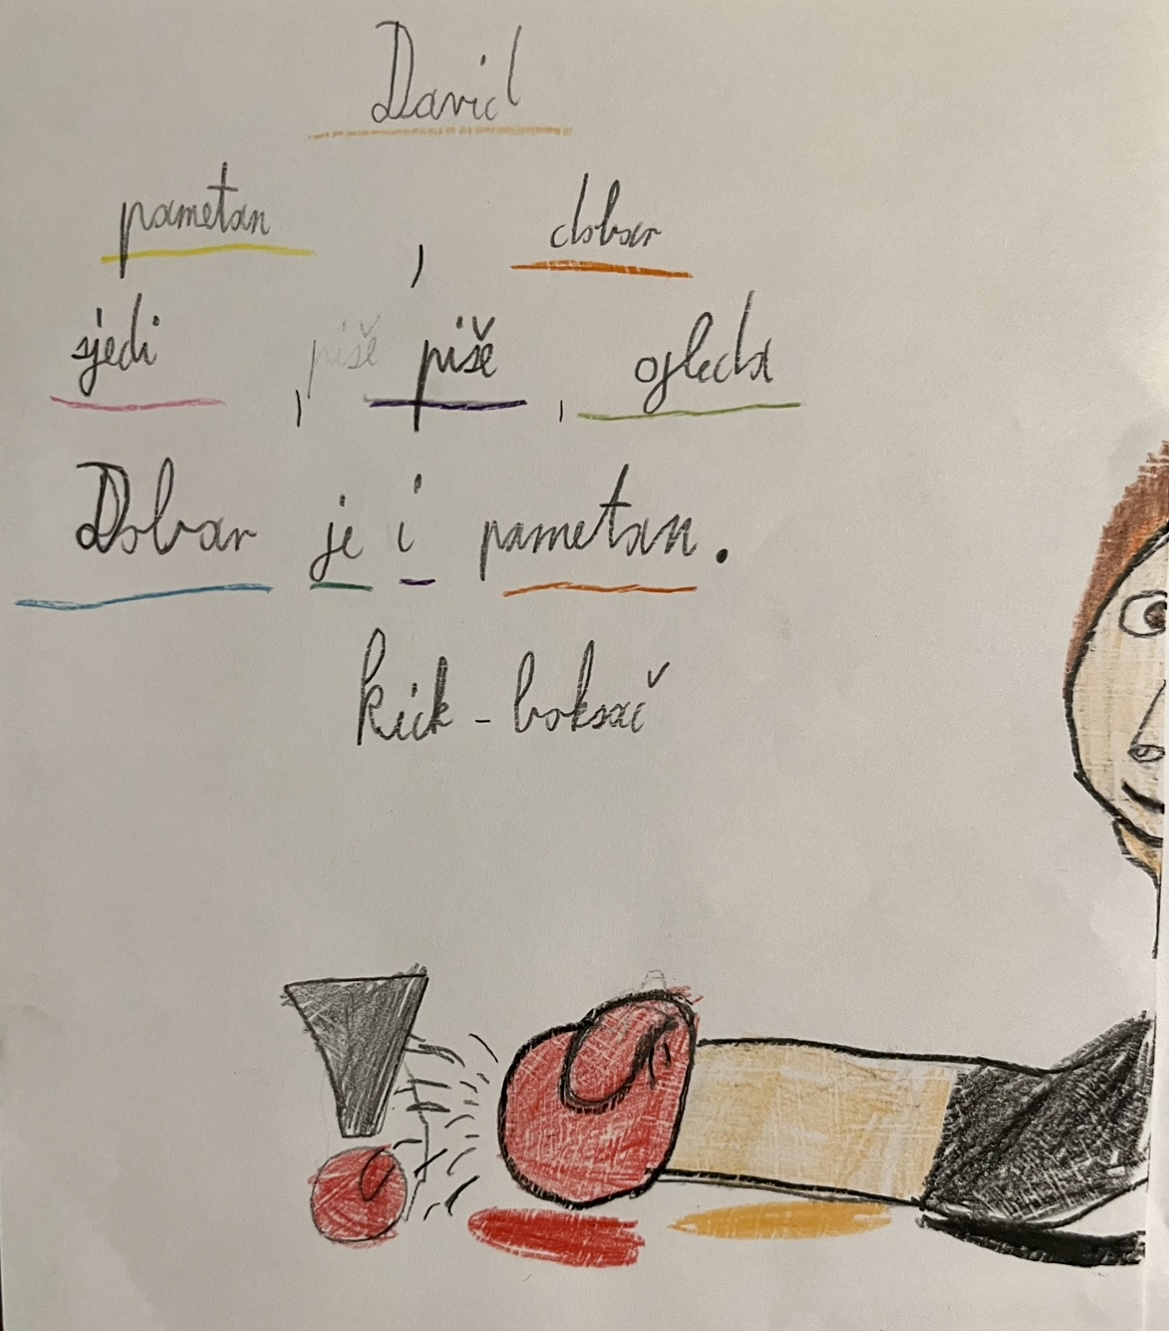 David
pametan, dobar
sjedi, piše piše, ogleda
Dobar je i pametan.
kick-boksač